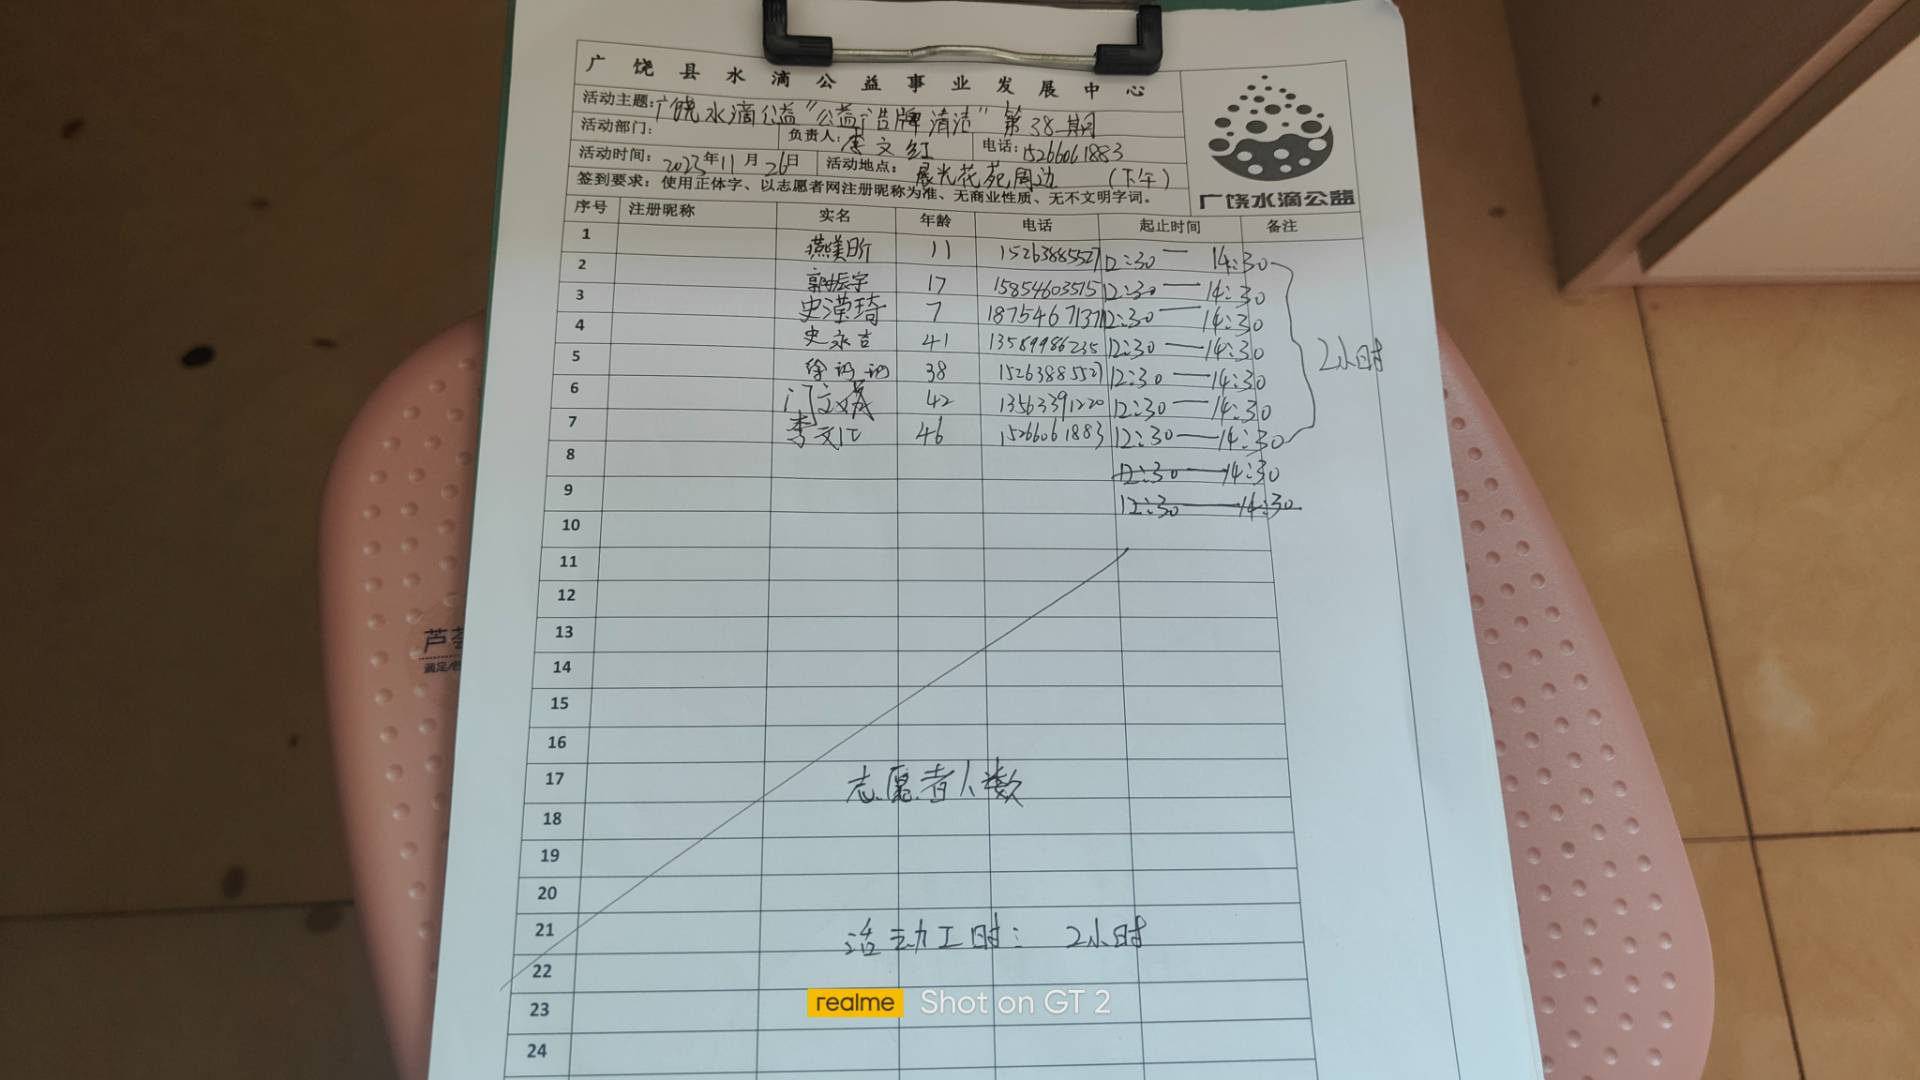 广饶县水滴公益事业发展中心
活动主题:广饶水滴公益"公益广告牌清洁"第38期
活动部门: 负责人:李文红 电话:15266061883
活动时间: 2023年11月26日 活动地点: 晨光花苑周边 (下午)
签到要求: 使用正体字、以志愿者网注册昵称为准、无商业性质、无不文明字词。
广饶水滴公益
序号 注册昵称 实名 年龄 电话 起止时间 备注
1 11 15263885527 12:30—14:30
2 郭振宇 17 15854603515 12:30—14:30
3 史滢琦 7 18754671371 12:30—14:30
4 史永吉 41 13589986235 12:30—14:30
5 徐 38 15263885527 12:30—14:30
6 门文 42 13563391220 12:30—14:30
7 李文江 46 15266061883 12:30—14:30
2小时
8 12:30—14:30
9 12:30—14:30
10
11
12
13
14
15
16
17 志愿者人数
18
19
20
21 活动工时: 2小时
22
23
24
芦荟
满足/
realme Shot on GT 2